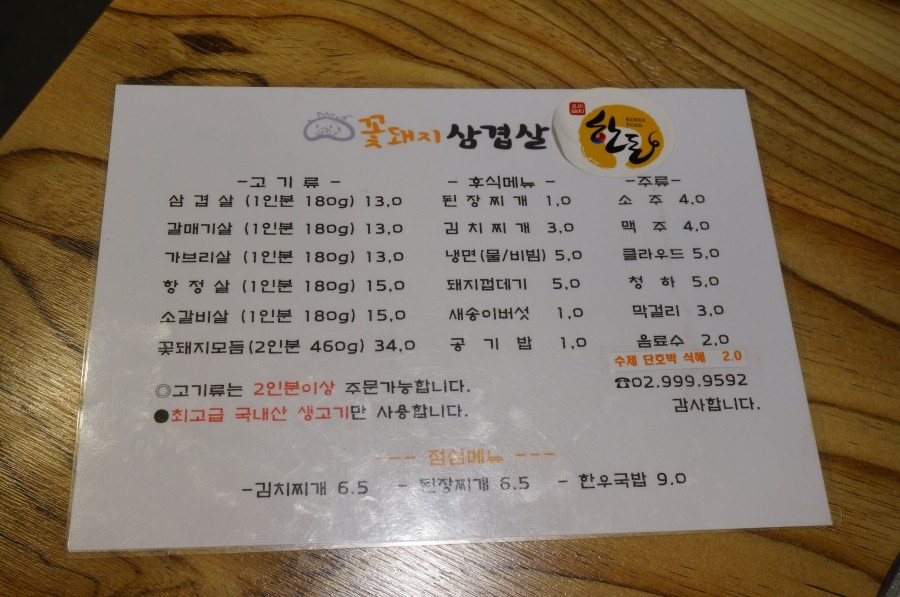 꽃돼지 삼겹살
우리돼지
KOREA PORK
한돈
-고 기 류 -
삼 겹 살 (1인분 180g) 13,0
갈매기살 (1인분 180g) 13,0
가브리살 (1인분 180g) 13,0
항 정 살 (1인분 180g) 15,0
소갈비살 (1인분 180g) 15,0
꽃돼지모듬(2인분 460g) 34,0
- 후식메뉴 -
된 장 찌 개 1,0
김 치 찌 개 3,0
냉면(물/비빔) 5,0
돼지껍데기 5,0
새송이버섯 1,0
공 기 밥 1,0
-주류-
소 주 4,0
맥 주 4,0
클라우드 5,0
청 하 5,0
막걸리 3,0
음료수 2,0
수제 단호박 식혜 2.0
☎02.999.9592
감사합니다.
◎고기류는 2인분이상 주문가능합니다.
●최고급 국내산 생고기만 사용합니다.
--- 점심메뉴 ---
-김치찌개 6.5 - 된장찌개 6.5 - 한우국밥 9.0